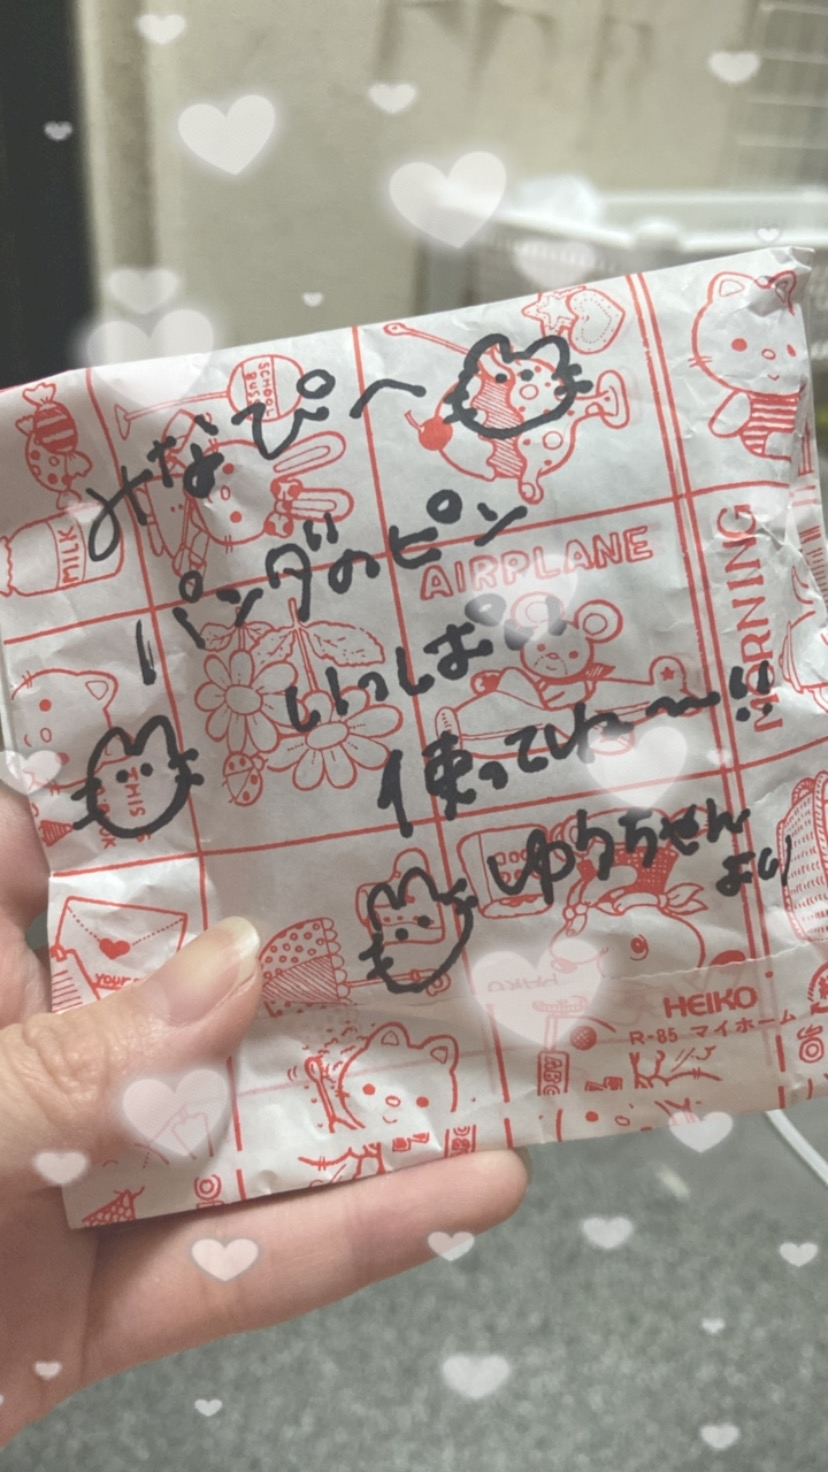 SCHOOL BUS
みなぴへ
MILK
パンダのピン
AIRPLANE
いっぱい
MORNING
使ってね〜〜!!
THIS
ゆうちぜん
より
HEIKO
R-85 マイホーム
ABC